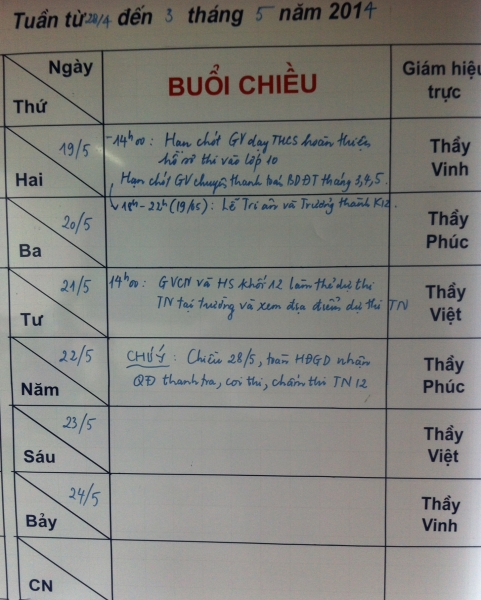 Tuần từ 28/4 đến 3 tháng 5 năm 2014
Ngày
Thứ
BUỔI CHIỀU
Giám hiệu
trực
19/5
Hai
- 14h00: Hạn chót GV dạy THCS hoàn thiện
hồ sơ thi vào lớp 10
Hạn chót GV chuyên thanh toán BDĐT tháng 3,4,5.
18h - 22h (19/05): Lễ Tri ân và Trưởng thành K12.
Thầy
Vinh
20/5
Ba
Thầy
Phúc
21/5
Tư
14h00: GVCN và HS khối 12 làm thẻ dự thi
TN tại trường và xem địa điểm dự thi TN
Thầy
Việt
22/5
Năm
CHÚ Ý: Chiều 28/5, toàn HĐGD nhận
QĐ thanh tra, coi thi, chấm thi TN 12
Thầy
Phúc
23/5
Sáu
Thầy
Việt
24/5
Bảy
Thầy
Vinh
CN